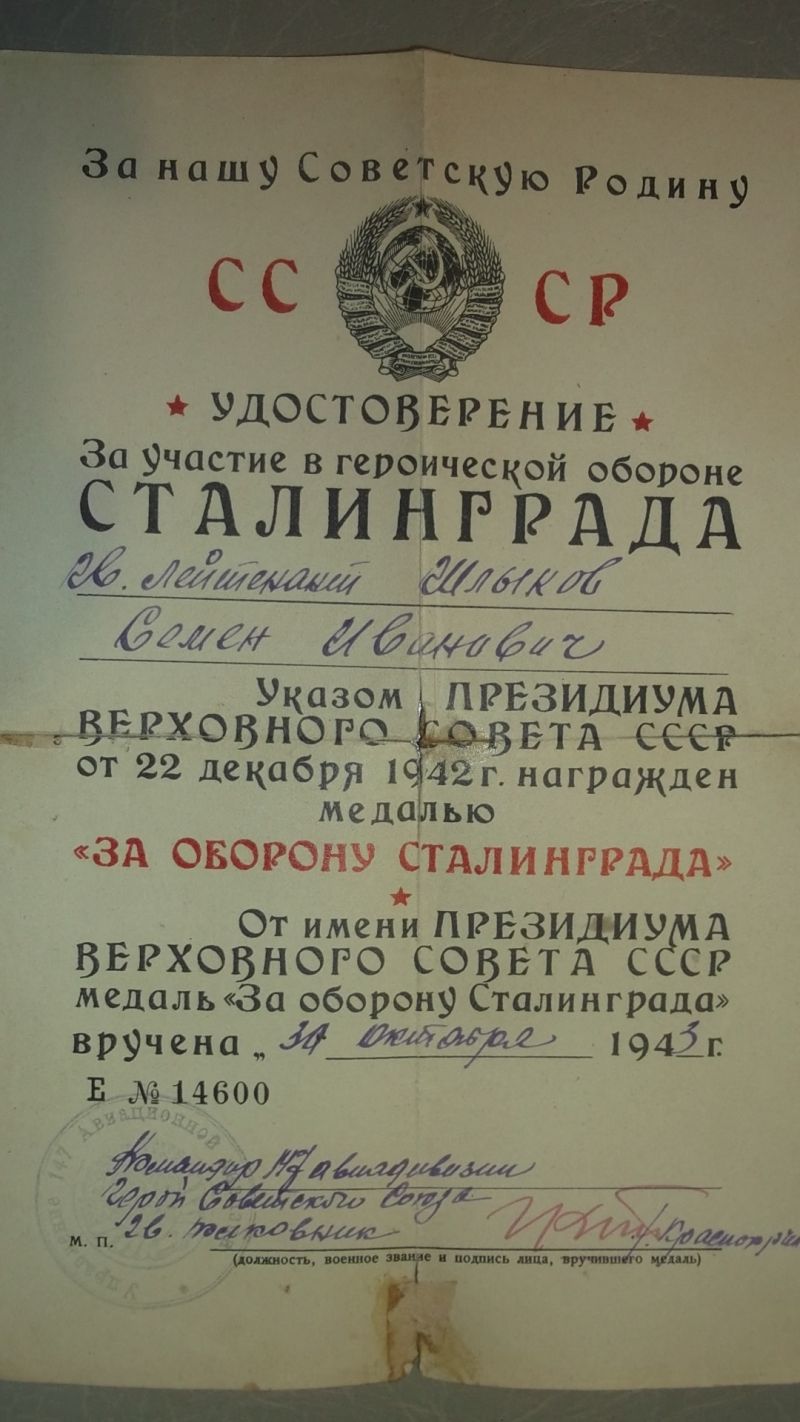 За нашу Советскую Родину
СС СР
УДОСТОВЕРЕНИЕ
За участие в героической обороне
СТАЛИНГРАДА
гв. лейтенант Шлыков
Семен Иванович
Указом ПРЕЗИДИУМА
ВЕРХОВНОГО СОВЕТА СССР
от 22 декабря 1942 г. награжден
медалью
«ЗА ОБОРОНУ СТАЛИНГРАДА»
От имени ПРЕЗИДИУМА
ВЕРХОВНОГО СОВЕТА СССР
медаль «За оборону Сталинграда»
вручена „ октября 1943 г.
Е № 14600
Управление 147 Авиационной
Командир 147 авиадивизии
Герой Советского Союза
гв. полковник
М. П.
(должность, военное звание и подпись лица, вручившего медаль)